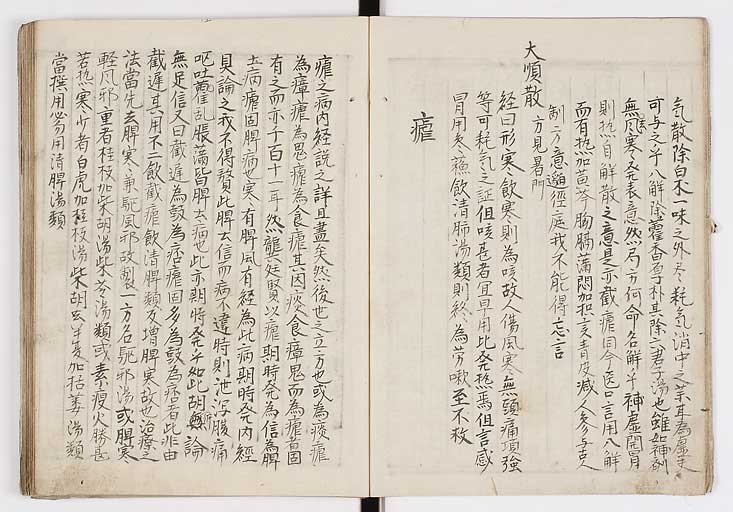 氣散除白朮一味之外冬耗氣消中之藥耳為虛
可与之乎八解除藿香厚朴其除六君子湯也雖如神
無風寒冬発表意然局方何命名解乎神虛開胃
則熱自解散之意是亦截瘧同今医口言用八解
而有熱加黄芩胸膈滿悶加枳売青皮減人参与
制二方意逈徑庭我不能得忘言
大順散
方見暑門
經曰形寒飲寒則為咳故人傷風寒無頭痛項強
等可耗氣之証但咳甚者宜早用比発熱焉徂言感
冒用冬蘓飲清肺湯類則終為労嗽至不救
瘧
瘧之病内經説之詳且盡矣然後世之立方也或為痰瘧
為瘴瘧為鬼瘧為食瘧其因痰食瘴鬼而為瘧者固
有之而亦千百十一耳然龔廷賢以瘧期時発為信為脾
土病瘧固脾病也寒有脾風有經為此病期時発内經
具論之我不得贅此脾去信而病不違時則泄瀉腹痛
嘔吐霍乱脹滿皆脾去病也此亦期時発乎如此胡論
無足信又曰截遅為鼓為痞瘧固多為鼓為痞者此非由
截遅其用不二飲截瘧飲清脾類反増脾寒故也治療之
法當先去脾寒兼駈風邪故製一方名駈邪湯或脾寒
軽風邪重者桂枝加柴胡湯柴苓湯類或素痩火勝甚
若熱寒少者白虎加桂枝湯柴胡去半夏加括蔞湯類
當撰用勿用清脾湯類